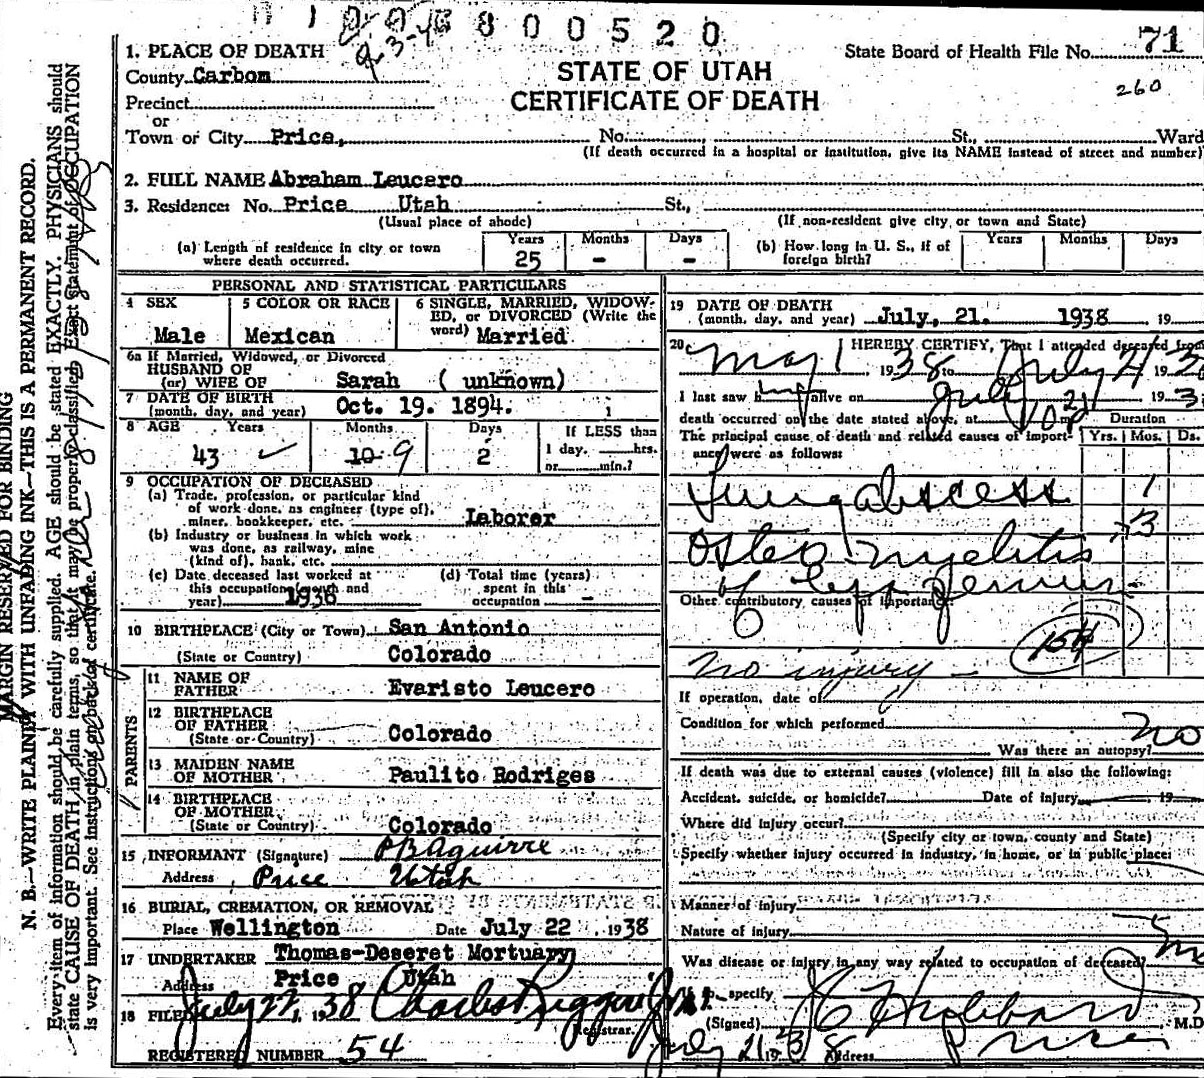 3800520
1. PLACE OF DEATH
State Board of Health File No. 71
County Carbon
STATE OF UTAH
260
Precinct
CERTIFICATE OF DEATH
or
Town or City Price, No. St., Ward
(If death occurred in a hospital or institution, give its NAME instead of street and number)
2. FULL NAME Abraham Leucero
3. Residence: No. Price Utah St.,
(Usual place of abode) (If non-resident give city or town and State)
(a) Length of residence in city or town where death occurred. Years 25 Months - Days -
(b) How long in U. S., if of foreign birth? Years Months Days
PERSONAL AND STATISTICAL PARTICULARS
4 SEX Male
5 COLOR OR RACE Mexican
6 SINGLE, MARRIED, WIDOW-
ED, or DIVORCED (Write the
word) Married
6a If Married, Widowed, or Divorced
HUSBAND OF
(or) WIFE OF Sarah ( unknown)
7 DATE OF BIRTH
(month, day, and year) Oct. 19. 1894.
8 AGE Years Months Days If LESS than
43 10 9 2 1 day, hrs.
or min.?
9 OCCUPATION OF DECEASED
(a) Trade, profession, or particular kind
of work done, as engineer (type of),
miner, bookkeeper, etc. Laborer
(b) Industry or business in which work
was done, as railway, mine
(kind of), bank, etc.
(c) Date deceased last worked at
this occupation (month and
year) 1936
(d) Total time (years)
spent in this
occupation -
10 BIRTHPLACE (City or Town) San Antonio
(State or Country) Colorado
PARENTS
11 NAME OF
FATHER Evaristo Leucero
12 BIRTHPLACE
OF FATHER
(State or Country) Colorado
13 MAIDEN NAME
OF MOTHER Paulito Rodriges
14 BIRTHPLACE
OF MOTHER
(State or Country) Colorado
15 INFORMANT (Signature) P B Aguirre
Address Price Utah
16 BURIAL, CREMATION, OR REMOVAL
Place Wellington Date July 22 , 1938
17 UNDERTAKER Thomas-Deseret Mortuary
Address Price Utah
18 FILED July 22, 1938 Charles Ruggeri Jr.
Registrar.
REGISTERED NUMBER 54
19 DATE OF DEATH
(month, day, and year) July, 21. 1938 , 19
20 I HEREBY CERTIFY, That I attended deceased from
May 1 , 1938 to July 21 , 193
I last saw him alive on July 21 , 193
death occurred on the date stated above, at 10 P m. Duration
The principal cause of death and related causes of import-
ance were as follows: Yrs. Mos. Ds.
Lung abscess 1
Osteo myelitis 3
of left femur
Other contributory causes of importance:
154
no injury -
If operation, date of
Condition for which performed
Was there an autopsy? no
If death was due to external causes (violence) fill in also the following:
Accident, suicide, or homicide? Date of injury 19
Where did injury occur?
(Specify city or town, county and State)
Specify whether injury occurred in industry, in home, or in public place:
Manner of injury
Nature of injury
Was disease or injury in any way related to occupation of deceased? no
If so, specify
(Signed) J C Hubbard , M.D.
July 21 1938 Address Price
MARGIN RESERVED FOR BINDING
N. B.—WRITE PLAINLY WITH UNFADING INK—THIS IS A PERMANENT RECORD.
Every item of information should be carefully supplied. AGE should be stated EXACTLY. PHYSICIANS should
state CAUSE OF DEATH in plain terms, so that it may be properly classified. Exact statement of OCCUPATION
is very important. See Instructions on back of certificate.